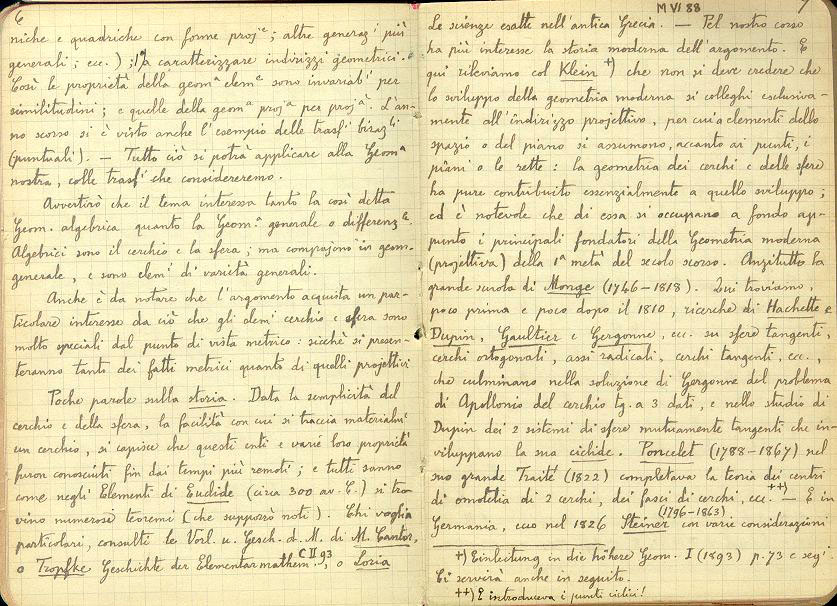 6
niche e quadriche con forme proj.e; altre generaz.i più
generali; ecc.); a caratterizzare indirizzi geometrici.
Così le proprietà della geom.a elem.e sono invariab.i per
similitudini; e quelle della geom.a proj.a per proj.à. L'an-
no scorso si è visto anche l'esempio delle trasf.i biraz.li
(puntuali). — Tutto ciò si potrà applicare alla Geom.a
nostra, colle trasf.i che considereremo.
Avvertirò che il tema interessa tanto la così detta
Geom. algebrica quanto la Geom.a generale o differenz.le
Algebrici sono il cerchio e la sfera; ma compajono in geom.
generale, e sono elem.i di varietà generali.
Anche è da notare che l'argomento acquista un par-
ticolare interesse da ciò che gli elemi cerchio e sfera sono
molto speciali dal punto di vista metrico: sicchè si presen-
teranno tanto dei fatti metrici quanto di quelli projettivi
Poche parole sulla storia. Data la semplicità del
cerchio e della sfera, la facilità con cui si traccia material.e
un cerchio, si capisce che questi enti e varie loro proprietà
furon conosciuti fin dai tempi più remoti; e tutti sanno
come negli Elementi di Euclide (circa 300 av. C.) si tro-
vino numerosi teoremi (che supporrò noti). Chi voglia
particolari, consulti le Vorl. u. Gesch. d. M. di M. Cantor,
o Tropfke Geschichte der Elementarmathem. C II 93, o Loria
M VI 88
7
Le scienze esatte nell'antica Grecia. — Pel nostro corso
ha più interesse la storia moderna dell'argomento. E
qui rileviamo col Klein +) che non si deve credere che
lo sviluppo della geometria moderna si colleghi esclusiva-
mente all'indirizzo projettivo, per cui a elementi dello
spazio o del piano si assumono, accanto ai punti, i
piani o le rette: la geometria dei cerchi e delle sfere
ha pure contribuito essenzialmente a quello sviluppo;
ed è notevole che di essa si occupano a fondo ap-
punto i principali fondatori della Geometria moderna
(projettiva) della 1a metà del secolo scorso. Anzitutto la
grande scuola di Monge (1746–1818). Qui troviamo,
poco prima e poco dopo il 1810, ricerche di Hachette e
Dupin, Gaultier e Gergonne, ecc. su sfere tangenti,
cerchi ortogonali, assi radicali, cerchi tangenti, ecc.,
che culminano nella soluzione di Gergonne del problema
di Apollonio del cerchio tg. a 3 dati, e nello studio di
Dupin dei 2 sistemi di sfere mutuamente tangenti che in-
viluppano la sua ciclide. Poncelet (1788–1867) nel
suo grande Traité (1822) completava la teoria dei centri
di omotetia di 2 cerchi, dei fasci di cerchi, ecc. ++) — E in
Germania, ecco nel 1826 Steiner (1796–1863) con varie considerazioni
+) Einleitung in die höhere Geom. I (1893) p. 73 e segi.
Ci servirà anche in seguito.
++) E introduceva i punti ciclici!